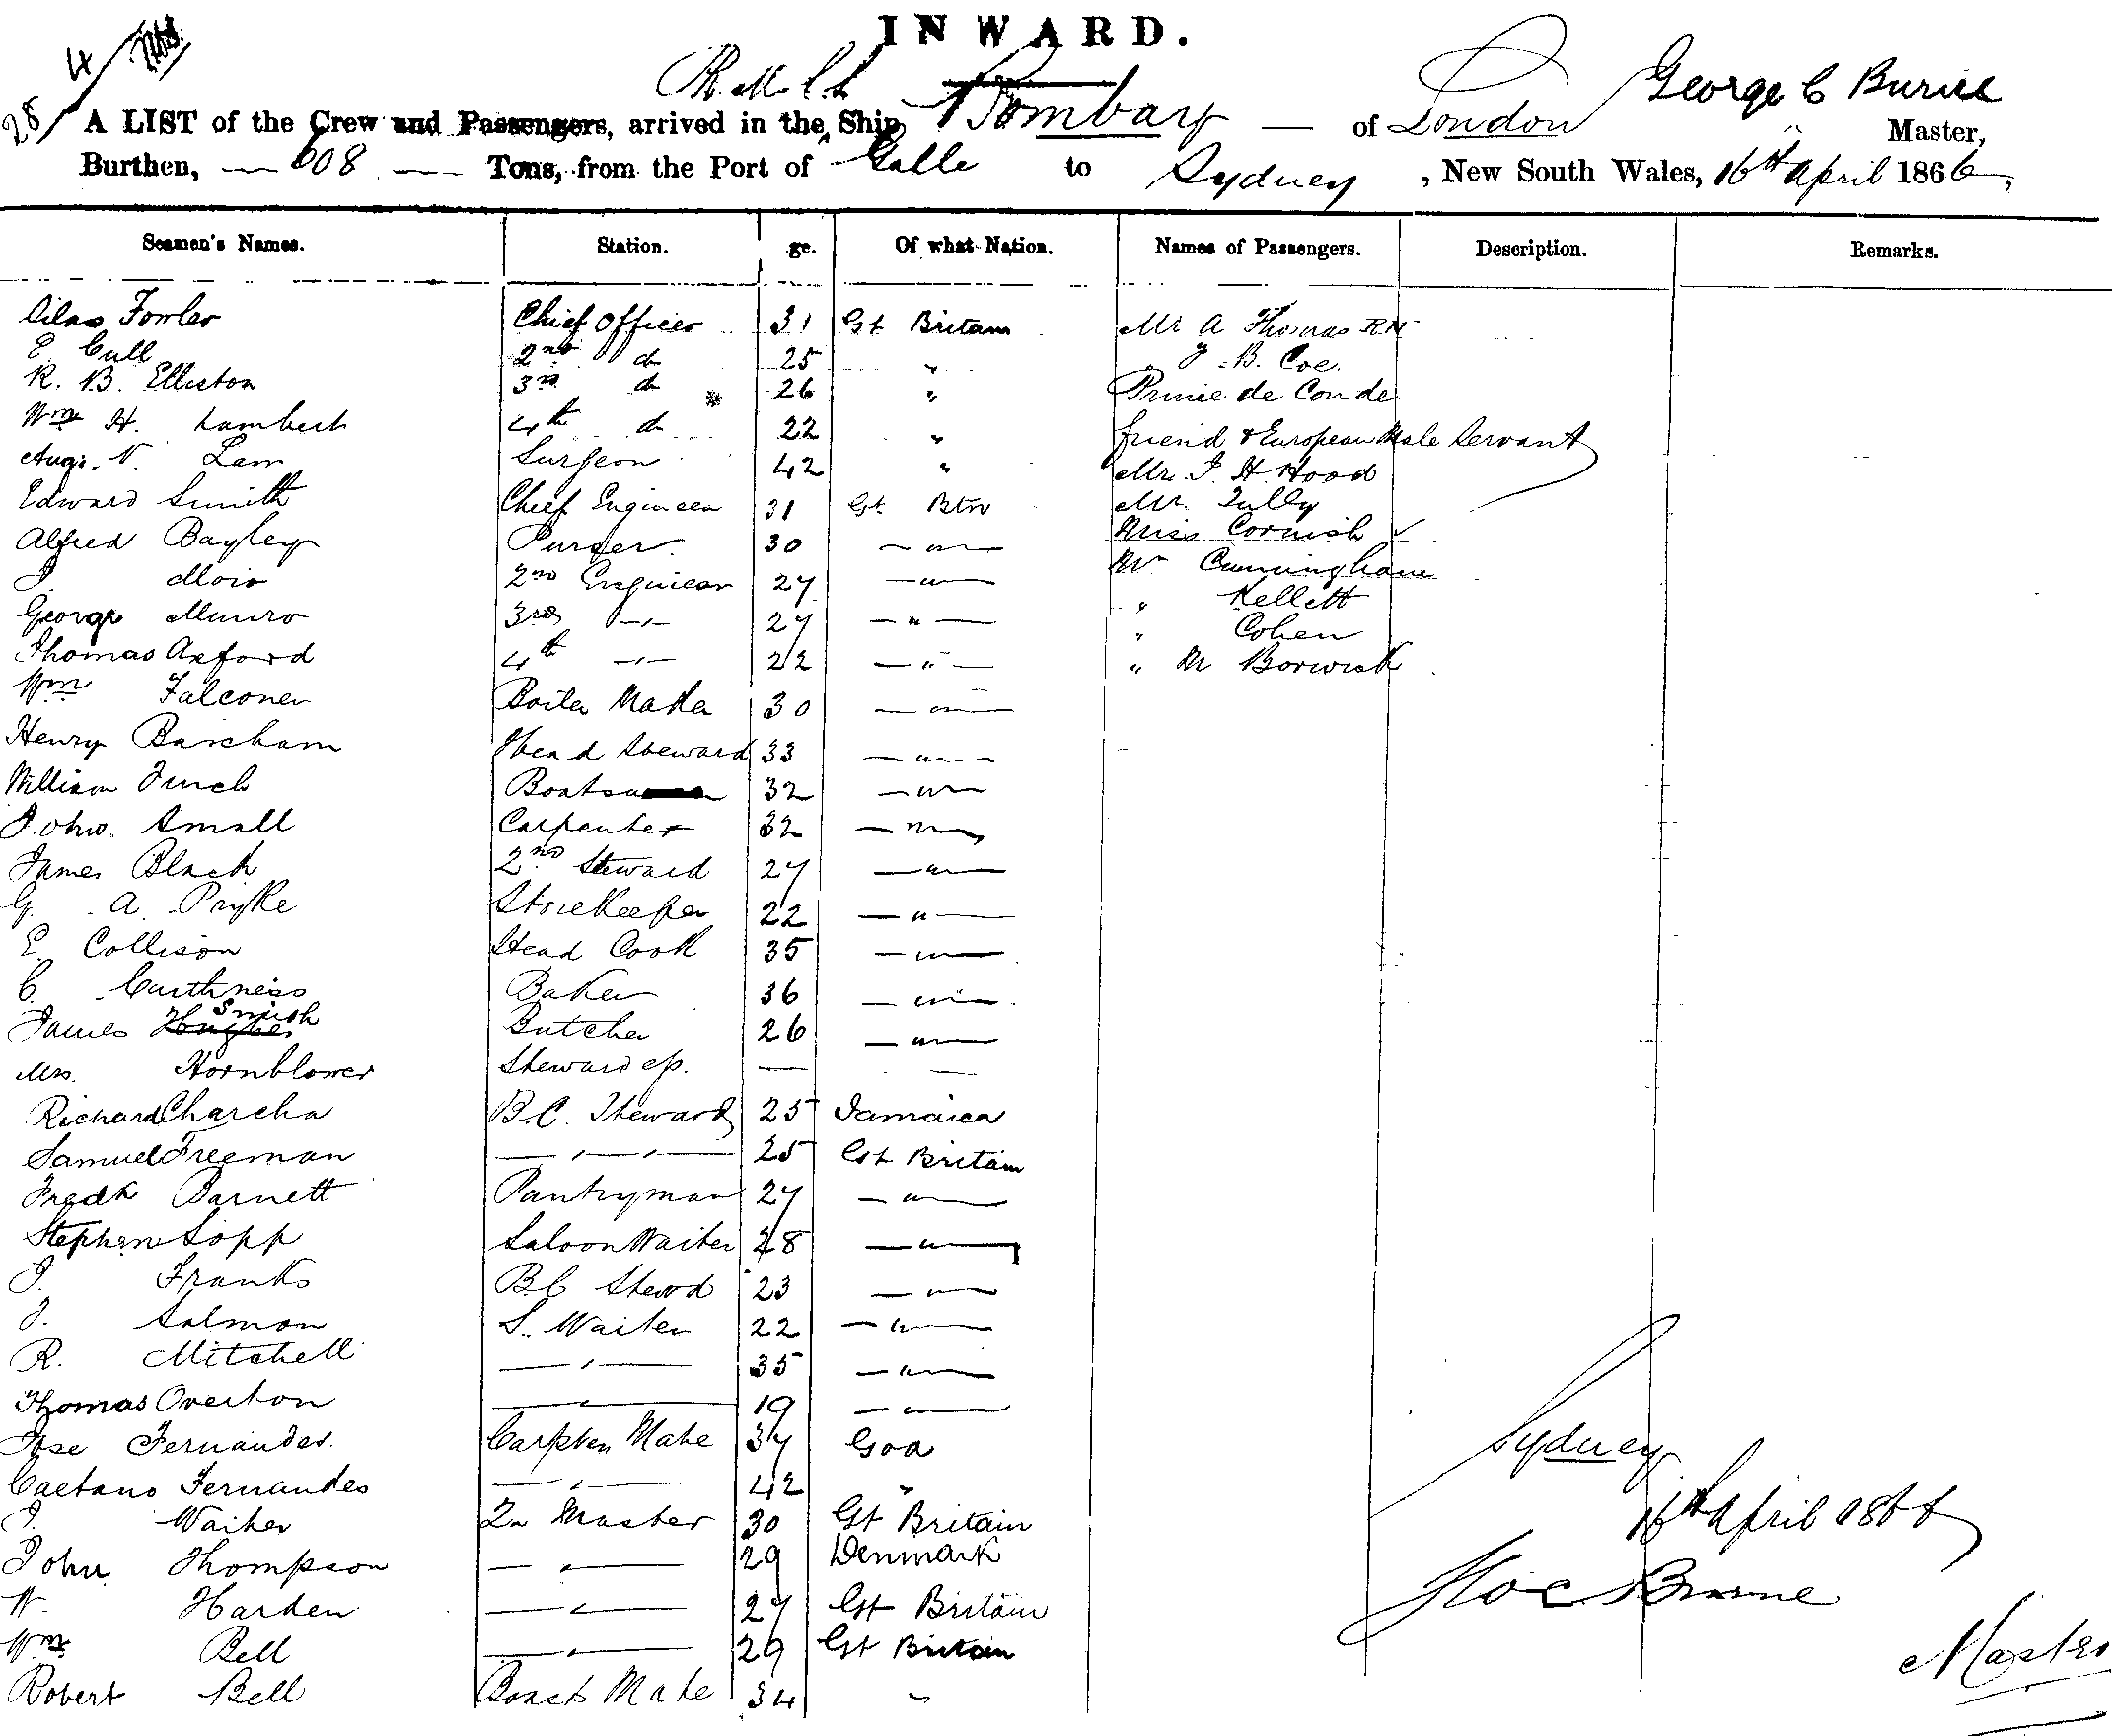 INWARD.
28/4
R.M.S.S. Bombay — of London George C Burne
A LIST of the Crew and Passengers, arrived in the Ship Master,
Burthen, — 608 — Tons, from the Port of Galle to Sydney, New South Wales, 16th April 1866,
Seamen's Names. Station. ge. Of what Nation. Names of Passengers. Description. Remarks.
Silas Fowler Chief Officer 31 Gt Britain Mr A Thomas RN
E. Cull 2nd do 25 " B. Coe.
R. B. Elliston 3rd do 26 " Prince de Conde
Wm H. Lambert 4th do 22 " friend & European Male Servant
Augs. N. Law Surgeon 42 " Mr. J. H. Hood
Edward Smith Chief Engineer 31 Gt Btn Mr. Tully
Alfred Bayley Purser 30 — " — Miss Cornish ✓
J. Moir 2nd Engineer 27 — " — Mr Cunningham
George Munro 3rd — " — 27 — " — " Kellett
Thomas Axford 4th — " — 22 — " — " Cohen
Wm Falconer Boiler Maker 30 — " — " M Borwick
Henry Barcham Head Steward 33 — " —
William Finch Boatsn 32 — " —
John Small Carpenter 32 — " —
James Black 2nd Steward 27 — " —
G. A. Pryke Storekeeper 22 — " —
E. Collison Head Cook 35 — " —
C. Caithness Baker 36 — " —
James Hughes Smith Butcher 26 — " —
Mrs. Hornblower Stewardess. — —
Richard B.C. Steward 25 Jamaica
Samuel Freeman — " — " — 25 Gt Britain
Fredk Barnett Pantryman 27 — " —
Stephen Sopp Saloon Waiter 28 — " —
J. Franks B.C Stewd 23 — " —
J. Salmon S. Waiter 22 — " —
R. Mitchell — " — 35 — " —
Thomas Overton — " — 19 — " —
Jose Fernandes. Carpten Mate 37 Goa
Caetano Fernandes — " — 42 "
J. Waiker Qr Master 30 Gt Britain
John Thompson — " — 29 Denmark
W. Harden — " — 27 Gt Britain
Wm Bell — " — 29 Gt Britain
Robert Bell Boats Mate 34 "
Sydney
16th April 1866
Geo C Burne
Master